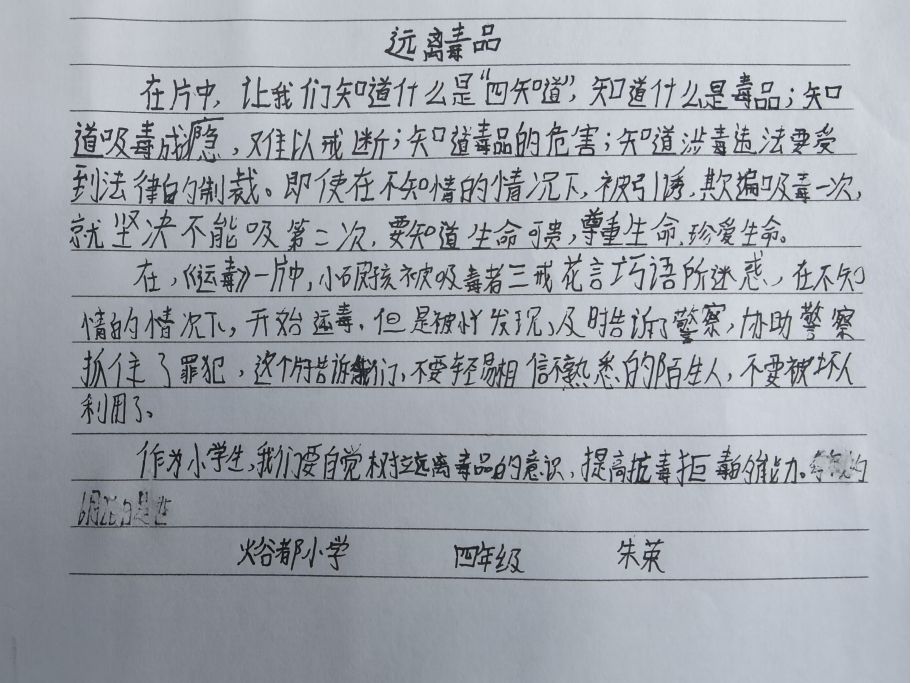 远离毒品
在片中，让我们知道什么是“四知道”，知道什么是毒品；知
道吸毒成瘾，难以戒断；知道毒品的危害；知道涉毒违法要受
到法律的制裁。即使在不知情的情况下，被引诱，欺骗吸毒一次，
就坚决不能吸第二次，要知道生命可贵，尊重生命，珍爱生命。
在，《运毒》一片中，小石被吸毒者三戒花言巧语所迷惑，在不知
情的情况下，开始运毒，但是被发现，及时告诉了警察，协助警察
抓住了罪犯，这个片告诉我们，不要轻易相信不熟悉的陌生人，不要被坏人
利用了。
作为小学生，我们要自觉树立远离毒品的意识，提高抗毒拒毒的能力。
6月26日是
焀都小学 四年级 朱荣